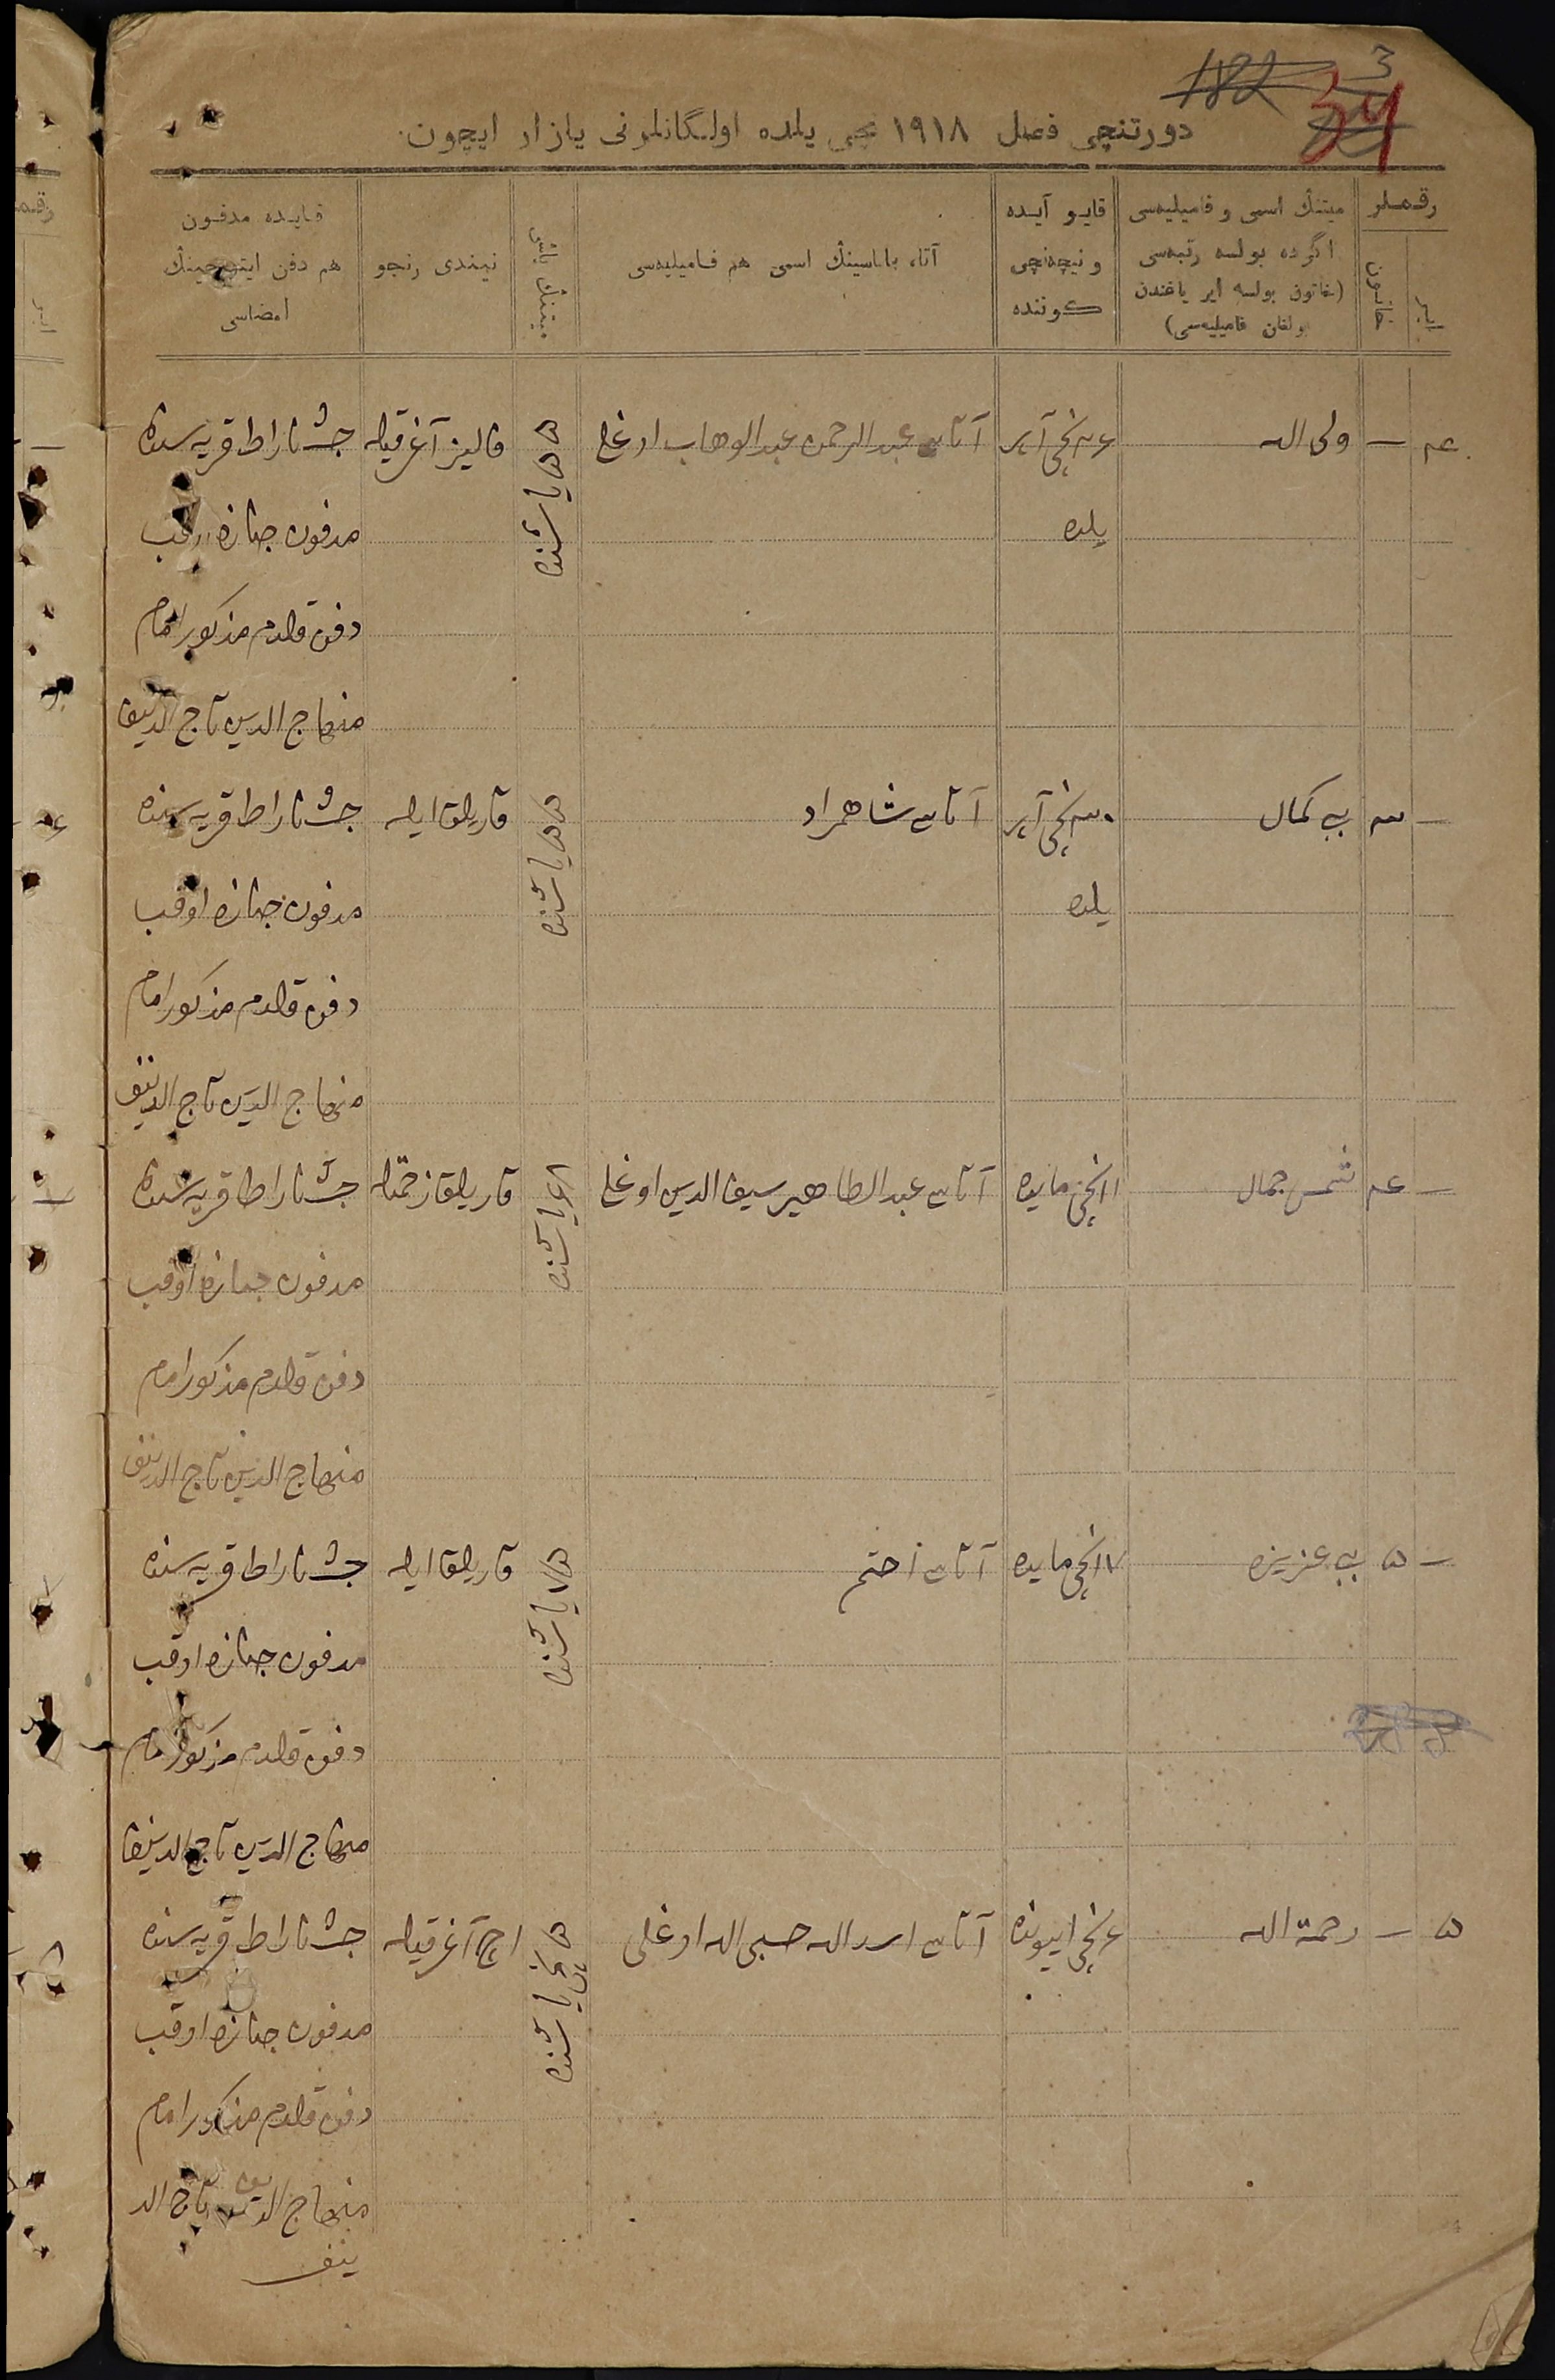 182 3
34
دورتنچی فصل ١٩١٨ نچی یلده اولگانلرنی یازار ایچون.
رقملر
ایر
خاتون
میتنڭ اسمی و فامیلیه‌سی
اگرده بولسه رتبه‌سی
(خاتون بولسه ایر یاغندن
بولغان فامیلیه‌سی)
قایو آیده
و نیچه‌نچی
کوننده
آتا، باباسینڭ اسمی هم فامیلیه‌سی
میتنڭ یاشی
نیندی رنجو
قایده مدفون
هم دفن ایتوچینڭ
امضاسی
ولی الله
آتاسی عبدالرحمن عبدالوهاب اوغلی
یاشنده
آغرقیله
قریه سنده
یلده
مدفون جنازه اوقب
دفن قلدم مذکور امام
منهاج الدین تاج الدینف
بی کمال
آتاسی شاهمراد
یاشنده
قاریلق ایله
قریه سنده
یلده
مدفون جنازه اوقب
دفن قلدم مذکور امام
منهاج الدین تاج الدینف
شمس جمال
١١نچی مایده
آتاسی عبدالطاهیر سیف الدین اوغلی
یاشنده
قاریلق زحمتیله
قریه سنده
مدفون جنازه اوقب
دفن قلدم مذکور امام
منهاج الدین تاج الدینف
۵ بی عزیزه
١٧نچی مایده
آتاسی
یاشنده
قاریلق ایله
قریه سنده
مدفون جنازه اوقب
دفن قلدم مذکور امام
منهاج الدین تاج الدینف
۵ — رحمة الله
نچی اییونده
آتاسی اسدالله حبی الله اوغلی
یاشنده
اچ آغرقیله
قریه سنده
مدفون جنازه اوقب
دفن قلدم مذکور امام
منهاج الدین تاج الد
ینف